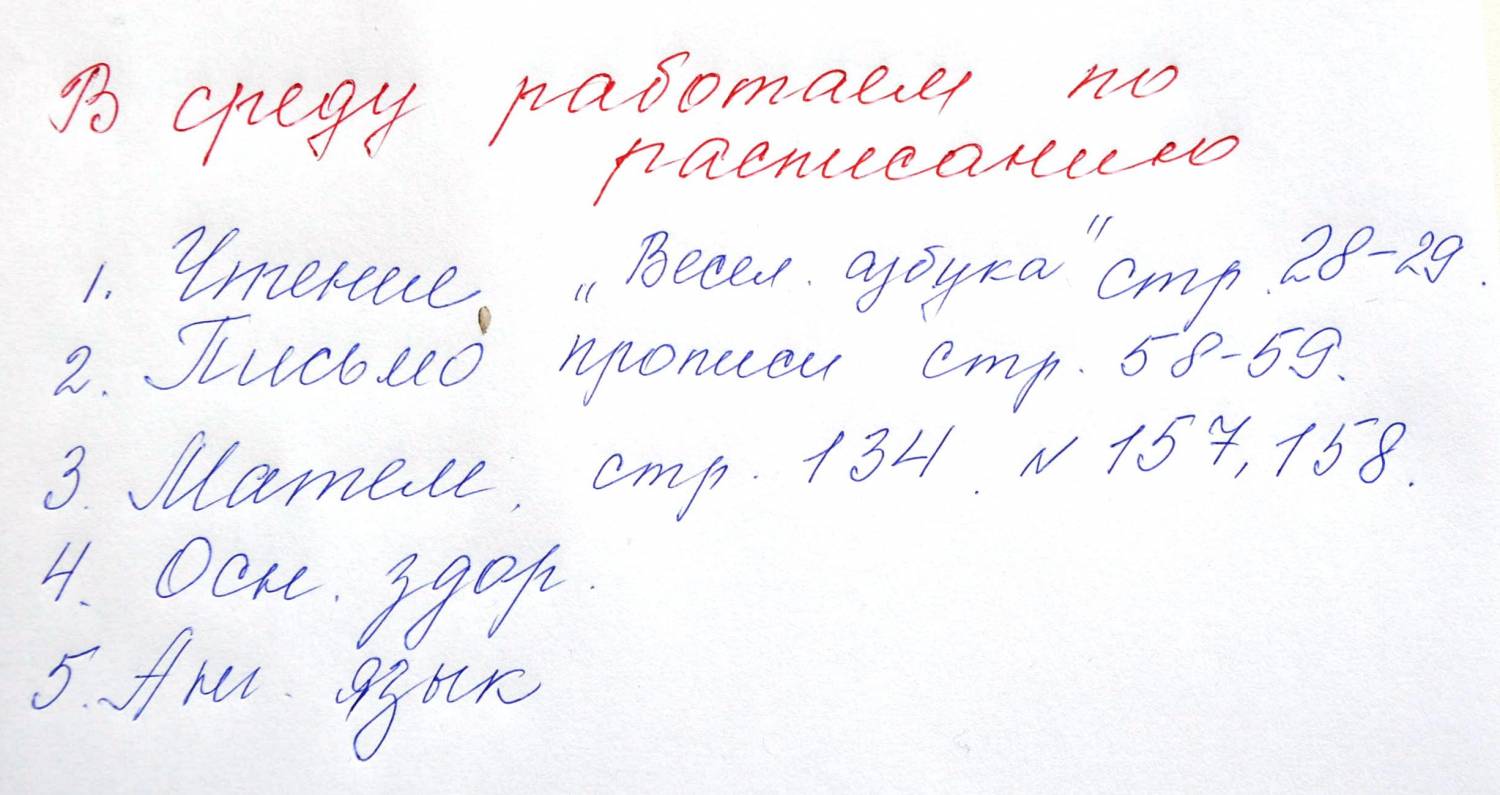 В среду работаем по
расписанию
1. Чтение „Весел. азбука" стр. 28-29.
2. Письмо прописи стр. 58-59.
3. Матем. стр. 134. № 157, 158.
4. Осн. здор.
5. Анг. язык